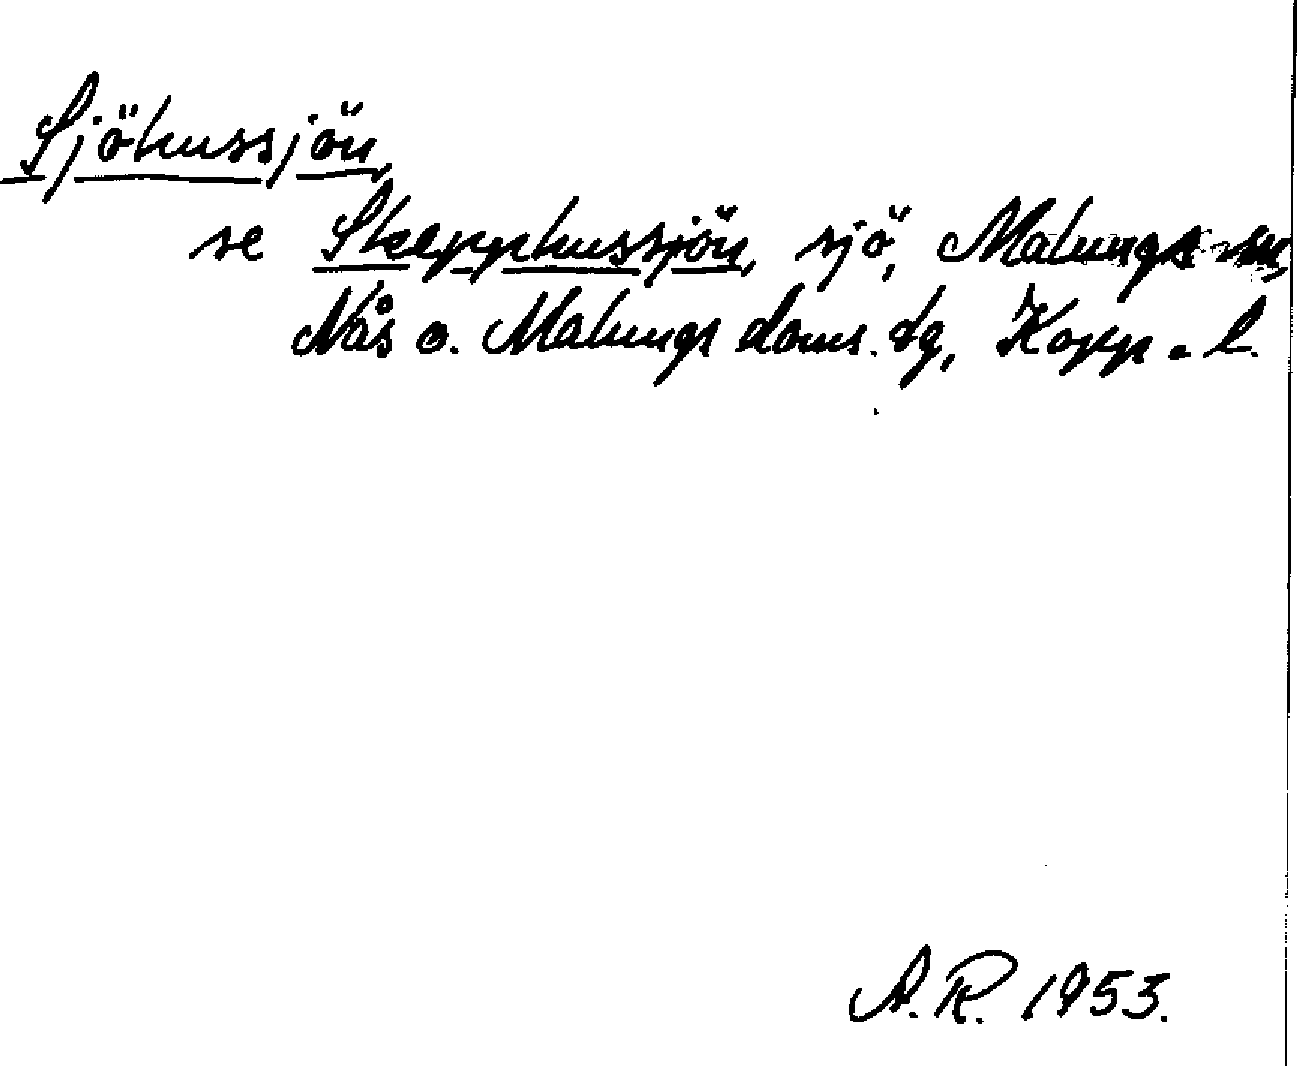 Sjöhussjön,
se Skepphussjön, sjö, Malungs sn,
Nås o. Malungs doms. tg, Kopp. l.
A.R. 1953.